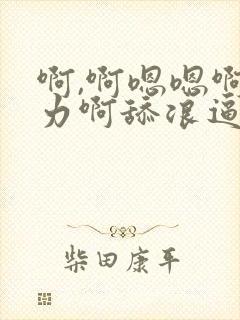 啊,啊嗯嗯啊
力啊舔浪逼
柴田康平